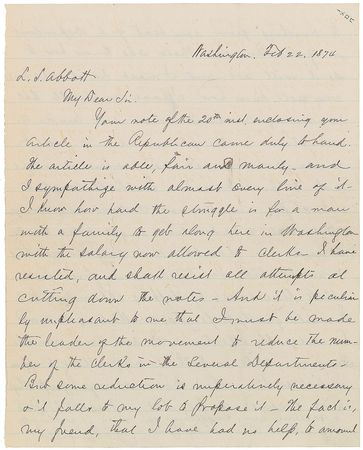 Washington, Feb 22, 1874
L. S. Abbott
My Dear Sir.
Your note of the 20th inst, enclosing your
article in the Republican came duly to hand.
The article is able, fair and manly - and
I sympathize with almost every line of it.
I know how hard the struggle is for a man
with a family to get along here in Washington
with the salary now allowed to clerks. I have
resisted, and shall resist all attempts at
cutting down the rates - And it is peculiar
ly unpleasant to me that I must be made
the leader of the movement to reduce the num-
ber of the clerks in the Several Departments -
But some reduction is imperatively necessary
& it falls to my lot to propose it - The fact is,
my friend, that I have had no help, to amount